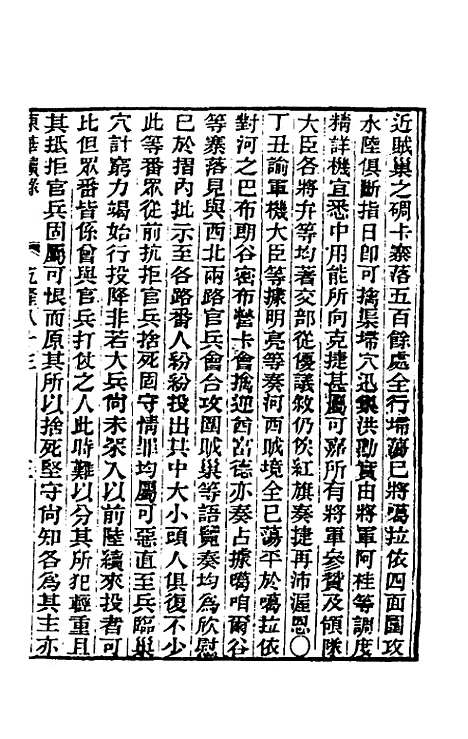 近賊巢之碉卡寨落五百餘處全行埽蕩已將噶拉依四面圍攻
水陸俱斷指日卽可擒渠埽穴迅集洪勳實由將軍阿桂等調度
精詳機宜悉中用能所向克捷甚屬可嘉所有將軍參贊及領隊
大臣各將弁等均著交部從優議敘仍俟紅旗奏捷再沛渥恩〇
丁丑諭軍機大臣等據明亮等奏河西賊境全已蕩平於噶拉依
對河之巴布朗谷密布營卡會擒迎酋富德亦奏占據噶咱爾谷
等寨落見與西北兩路官兵會合攻圍賊巢等語覽奏均爲欣慰
已於摺內批示至各路番人紛紛投出其中大小頭人俱復不少
此等番眾從前抗拒官兵捨死固守情罪均屬可惡直至兵臨巢
穴計窮力竭始行投降非若大兵尙未深入以前陸續來投者可
比但眾番皆係曾與官兵打仗之人此時難以分其所犯輕重且
其抵拒官兵固屬可恨而原其所以捨死堅守尙知各爲其主亦
東華續錄